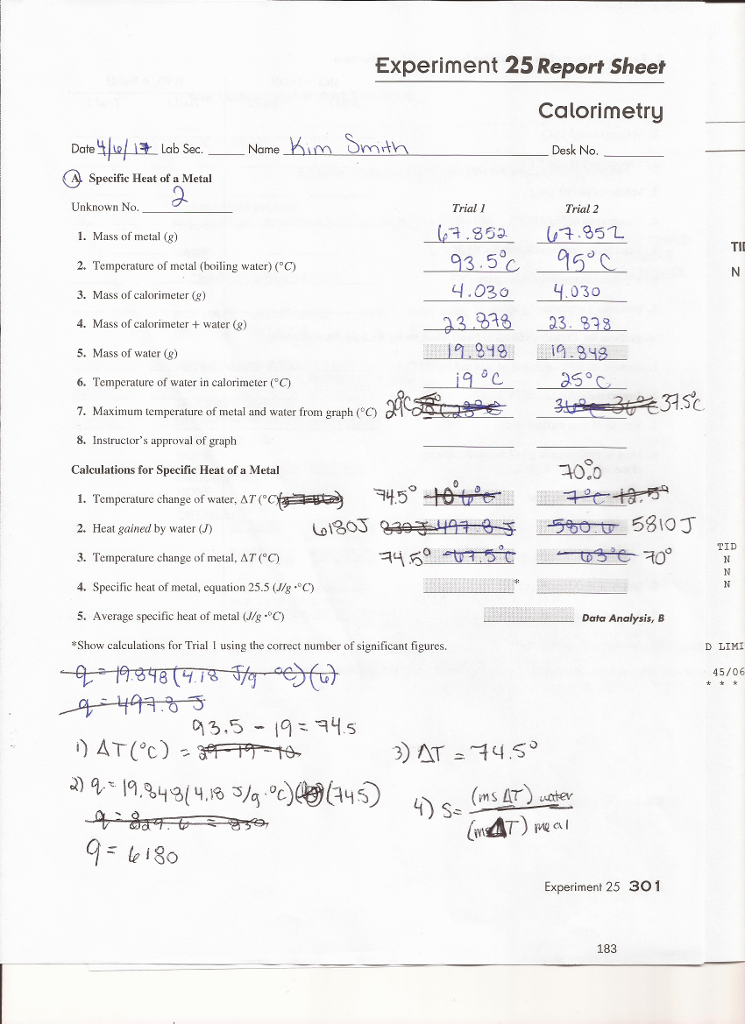 Experiment 25 Report Sheet
Calorimetry
Date 4/6/17 Lab Sec. Name Kim Smith Desk No.
A. Specific Heat of a Metal
Unknown No. 2
Trial 1 Trial 2
1. Mass of metal (g) 67.852 67.852
2. Temperature of metal (boiling water) (°C) 93.5°C 95°C
3. Mass of calorimeter (g) 4.030 4.030
4. Mass of calorimeter + water (g) 23.878 23.878
5. Mass of water (g) 19.848 19.848
6. Temperature of water in calorimeter (°C) 19°C 25°C
7. Maximum temperature of metal and water from graph (°C) 29°C 28°C 36°C 36°C 37.5°C
8. Instructor's approval of graph
Calculations for Specific Heat of a Metal
70.0°
1. Temperature change of water, ΔT (°C) 74.5° 10° 6°C 7°C 12.5°
2. Heat gained by water (J) 6180J 830J 497.8 J 580.6 5810 J
3. Temperature change of metal, ΔT (°C) 74.5° 67.5°C 63°C 70°
4. Specific heat of metal, equation 25.5 (J/g •°C) *
5. Average specific heat of metal (J/g •°C) Data Analysis, B
*Show calculations for Trial 1 using the correct number of significant figures.
q = 19.848 (4.18 J/g °C)(6)
q = 497.8 J
93.5 - 19 = 74.5
1) ΔT(°C) = 29-19 = 10
3) ΔT = 74.5°
2) q = 19.848(4.18 J/g·°C) (74.5)
q = 829.6 = 830
q = 6180
4) S = (ms ΔT) water
(ms ΔT) meal
Experiment 25 301
183
TI
N
TID
N
N
N
D LIMI
45/06
* * *